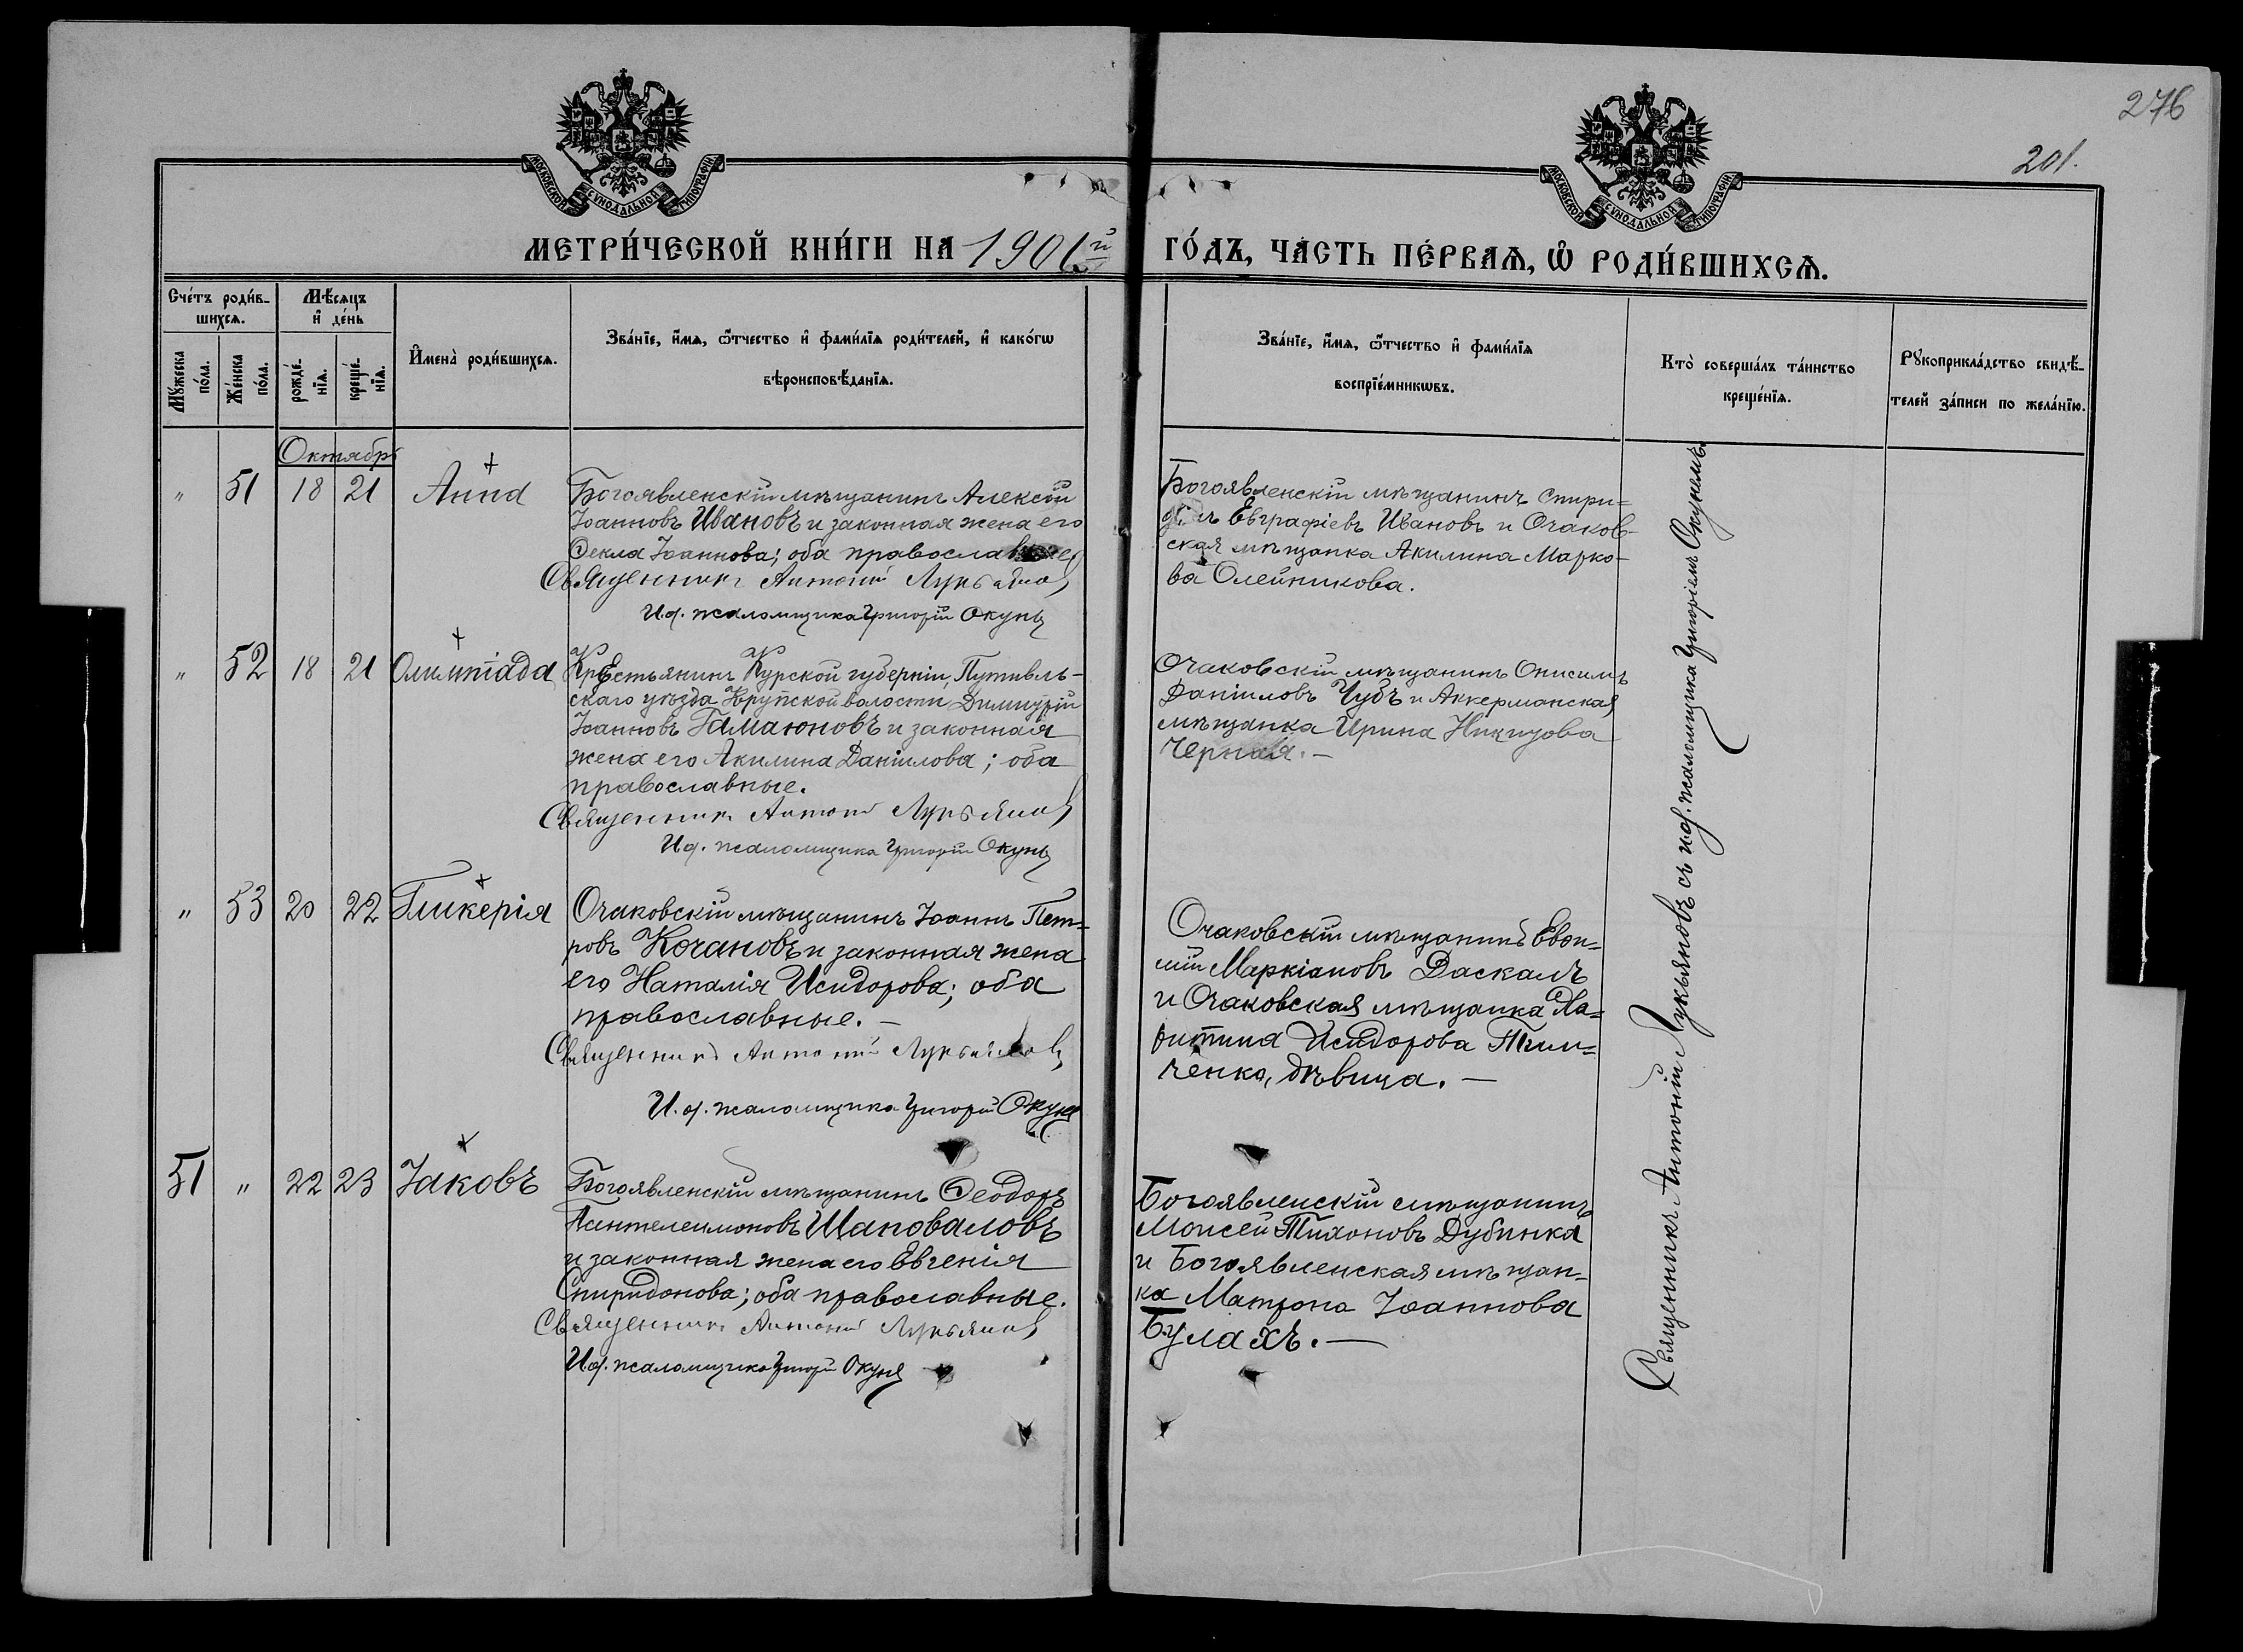 276
201.
МОСКОВСКОЙ СѴНОДАЛЬНОЙ ТИПОГРАФІИ
МОСКОВСКОЙ СѴНОДАЛЬНОЙ ТИПОГРАФІИ
МЕТРИ́ЧЕСКОЙ КНИ́ГИ НА 1901й ГО́ДЪ, ЧА́СТЬ ПЕ́РВАѦ, Ѡ҆ РОДИ́ВШИХСѦ.
Сче́тъ роди́в-
шихсѧ.
Мꙋ́жеска
по́ла.
Же́нска
по́ла.
Мѣ́сѧцъ
и҆ де́нь
рожде́-
нїѧ.
креще́-
нїѧ.
И҆мена̀ роди́вшихсѧ.
Зва́нїе, и҆́мѧ, ѻ҆́тчество и҆ фами́лїѧ роди́телей, и҆ како́гѡ
вѣроисповѣ́данїѧ.
Зва́нїе, и҆́мѧ, ѻ҆́тчество и҆ фами́лїѧ
воспрїе́мникѡвъ.
Кто̀ соверша́лъ та́инство
креще́нїѧ.
Рꙋкоприкла́дство свидѣ́-
телей за́писи по жела́нїю.
Октябрь
" 51 18 21 Анна
Богоявленскій мѣщанинъ Алексій
Іоанновъ Ивановъ и законная жена его
Ѳекла Іоаннова; оба православные
Священникъ Антоній Лукьяновъ
И.д. псаломщика Григорій Окунь
Богоявленскій мѣщанинъ Спири=
донъ Евграфіевъ Ивановъ и Очаков-
ская мѣщанка Акилина Марко-
ва Олейникова.
" 52 18 21 Олимпіада
Крестьянинъ Курской губерніи, Путивль-
скаго уѣзда Крупской волости Димитрій
Іоанновъ Гамаюновъ и законная
жена его Акилина Даніилова; оба
православные.
Священникъ Антоній Лукьяновъ
И.д. псаломщика Григорій Окунь
Очаковскій мѣщанинъ Онисимъ
Даніиловъ Чубъ и Аккерманская
мѣщанка Ирина Никитова
Черная.—
" 53 20 22 Гликерія
Очаковскій мѣщанинъ Іоаннъ Пет=
ровъ Кочановъ и законная жена
его Наталія Исидорова; оба
православные.—
Священникъ Антоній Лукьяновъ
И.д. псаломщика Григорій Окунь
Очаковскій мѣщанинъ Евѳи=
мій Маркіановъ Даскалъ
и Очаковская мѣщанка Ха=
ритина Исидорова Тим=
ченко, дѣвица.—
51 " 22 23 Іаковъ
Богоявленскій мѣщанинъ Ѳеодоръ
Пантелеимоновъ Шаповаловъ
и законная жена его Евгенія
Спиридонова; оба православные.
Священникъ Антоній Лукьяновъ
И.д. псаломщика Григорій Окунь
Богоявленскій мѣщанинъ
Моисей Тихоновъ Дубинка
и Богоявленская мѣщан=
ка Матрона Іоаннова
Булахъ.—
Священникъ Антоній Лукьяновъ съ и.д. псаломщика Григоріемъ Окунемъ.